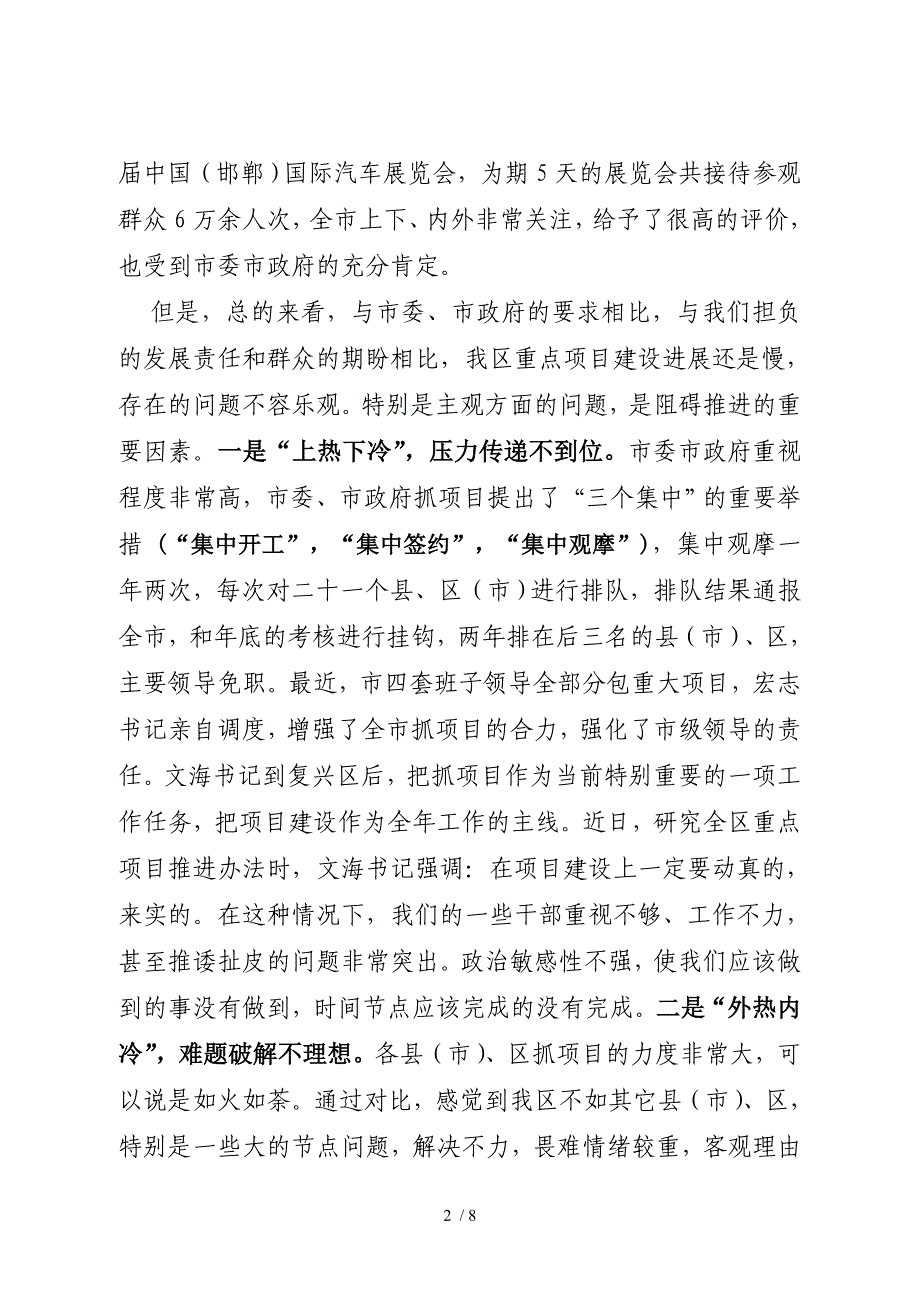 届中国（邯郸）国际汽车展览会，为期 5 天的展览会共接待参观
群众 6 万余人次，全市上下、内外非常关注，给予了很高的评价，
也受到市委市政府的充分肯定。
但是，总的来看，与市委、市政府的要求相比，与我们担负
的发展责任和群众的期盼相比，我区重点项目建设进展还是慢，
存在的问题不容乐观。特别是主观方面的问题，是阻碍推进的重
要因素。一是“上热下冷”，压力传递不到位。市委市政府重视
程度非常高，市委、市政府抓项目提出了“三个集中”的重要举
措（“集中开工”，“集中签约”，“集中观摩”），集中观摩一
年两次，每次对二十一个县、区（市）进行排队，排队结果通报
全市，和年底的考核进行挂钩，两年排在后三名的县（市）、区，
主要领导免职。最近，市四套班子领导全部分包重大项目，宏志
书记亲自调度，增强了全市抓项目的合力，强化了市级领导的责
任。文海书记到复兴区后，把抓项目作为当前特别重要的一项工
作任务，把项目建设作为全年工作的主线。近日，研究全区重点
项目推进办法时，文海书记强调：在项目建设上一定要动真的，
来实的。在这种情况下，我们的一些干部重视不够、工作不力，
甚至推诿扯皮的问题非常突出。政治敏感性不强，使我们应该做
到的事没有做到，时间节点应该完成的没有完成。二是“外热内
冷”，难题破解不理想。各县（市）、区抓项目的力度非常大，可
以说是如火如荼。通过对比，感觉到我区不如其它县（市）、区，
特别是一些大的节点问题，解决不力，畏难情绪较重，客观理由
2 / 8